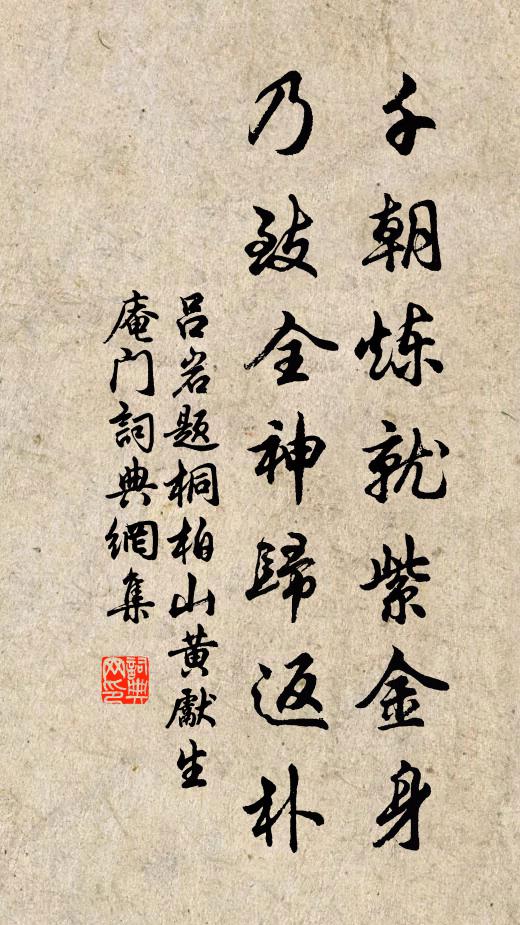 千朝炼就紫金身
乃致全神歸返朴
吕岩题桐柏山黄獻生
庵门詞典網集
詞典
网印